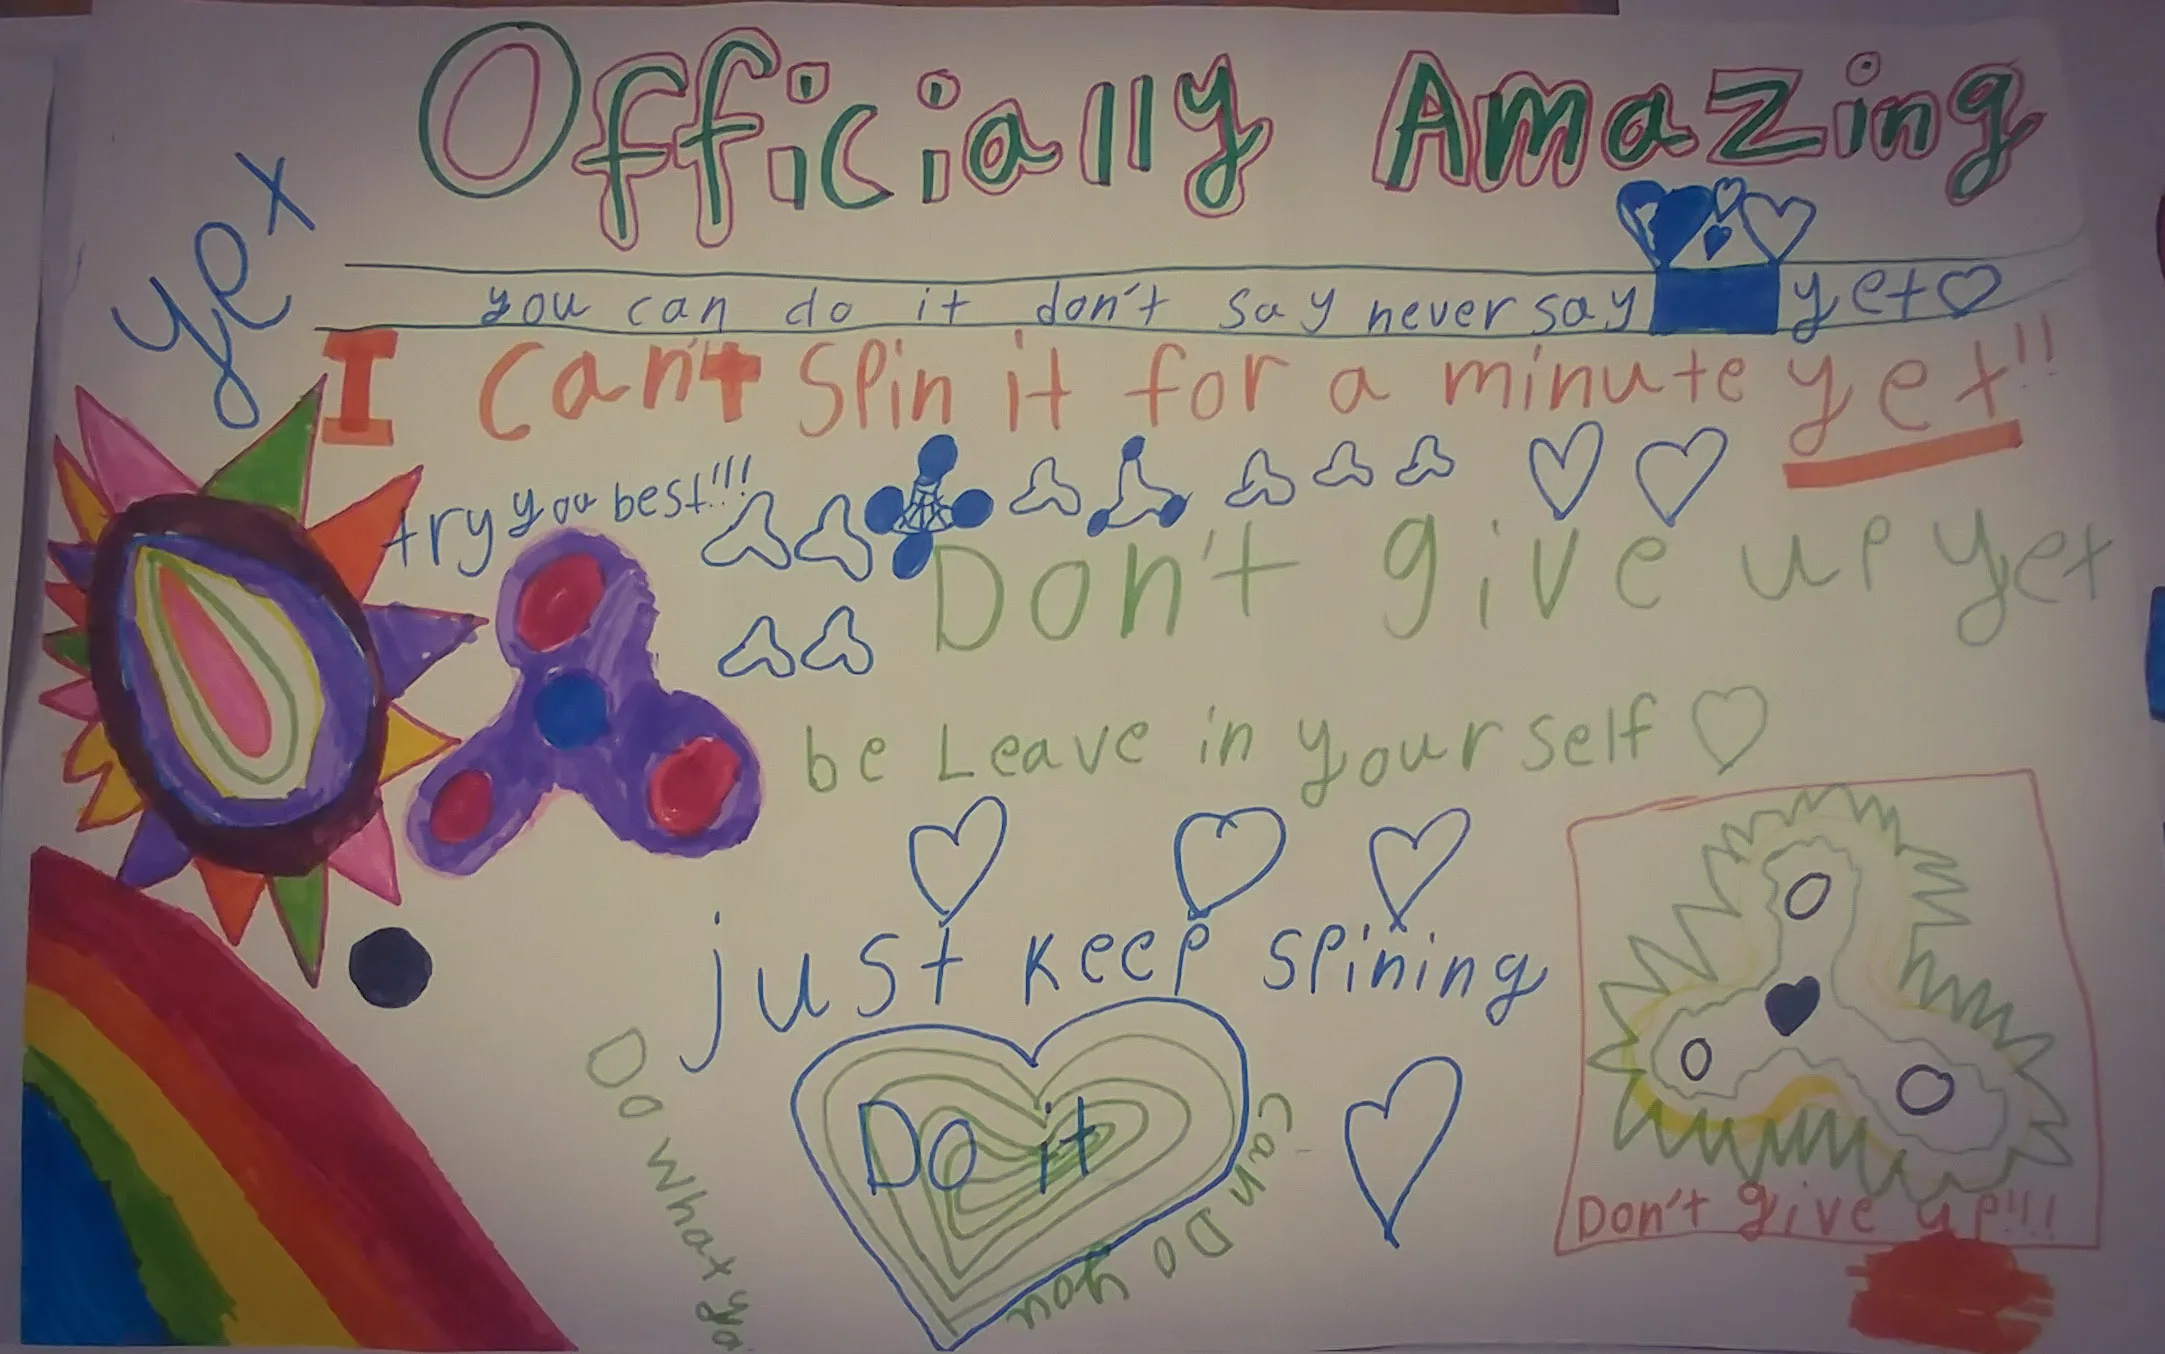 Officially Amazing
yet
you can do it don't say never say yet
I can't spin it for a minute yet!!
try you best!!!
Don't give up yet
be Leave in yourself
just keep spining
Do it
Do what yo
can Do you
Don't give up!!!